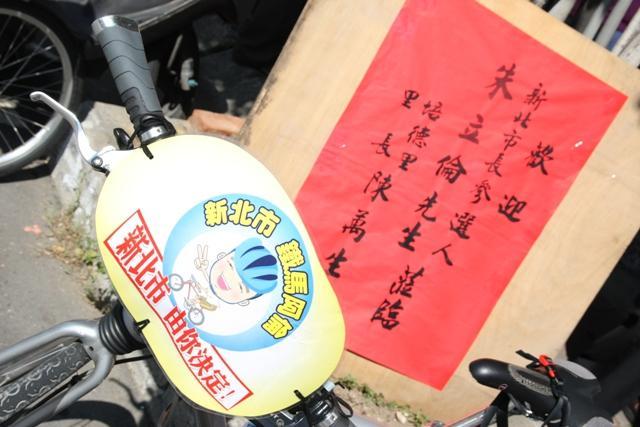 歡迎
新北市長參選人
朱立倫先生蒞臨
培德里
里長陳萬生
新北市 鐵馬向前
新北市 由你決定!